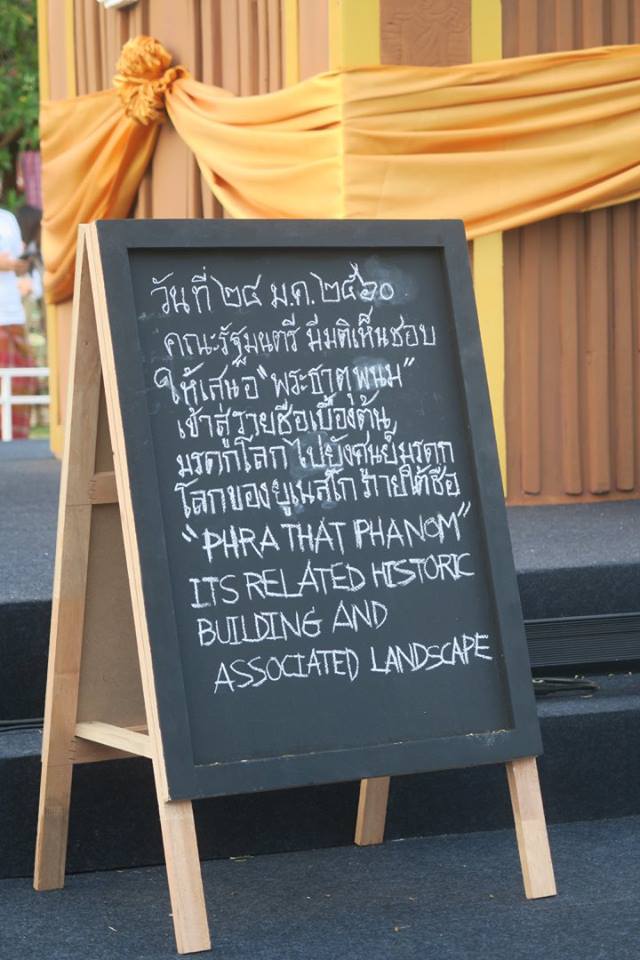 วันที่ ๒๔ ม.ค. ๒๕๖๐
คณะรัฐมนตรี มีมติเห็นชอบ
ให้เสนอ "พระธาตุพนม"
เข้าสู่รายชื่อเบื้องต้น
มรดกโลก ไปยังศูนย์มรดก
โลกของยูเนสโก ภายใต้ชื่อ
"PHRA THAT PHANOM"
ITS RELATED HISTORIC
BUILDING AND
ASSOCIATED LANDSCAPE